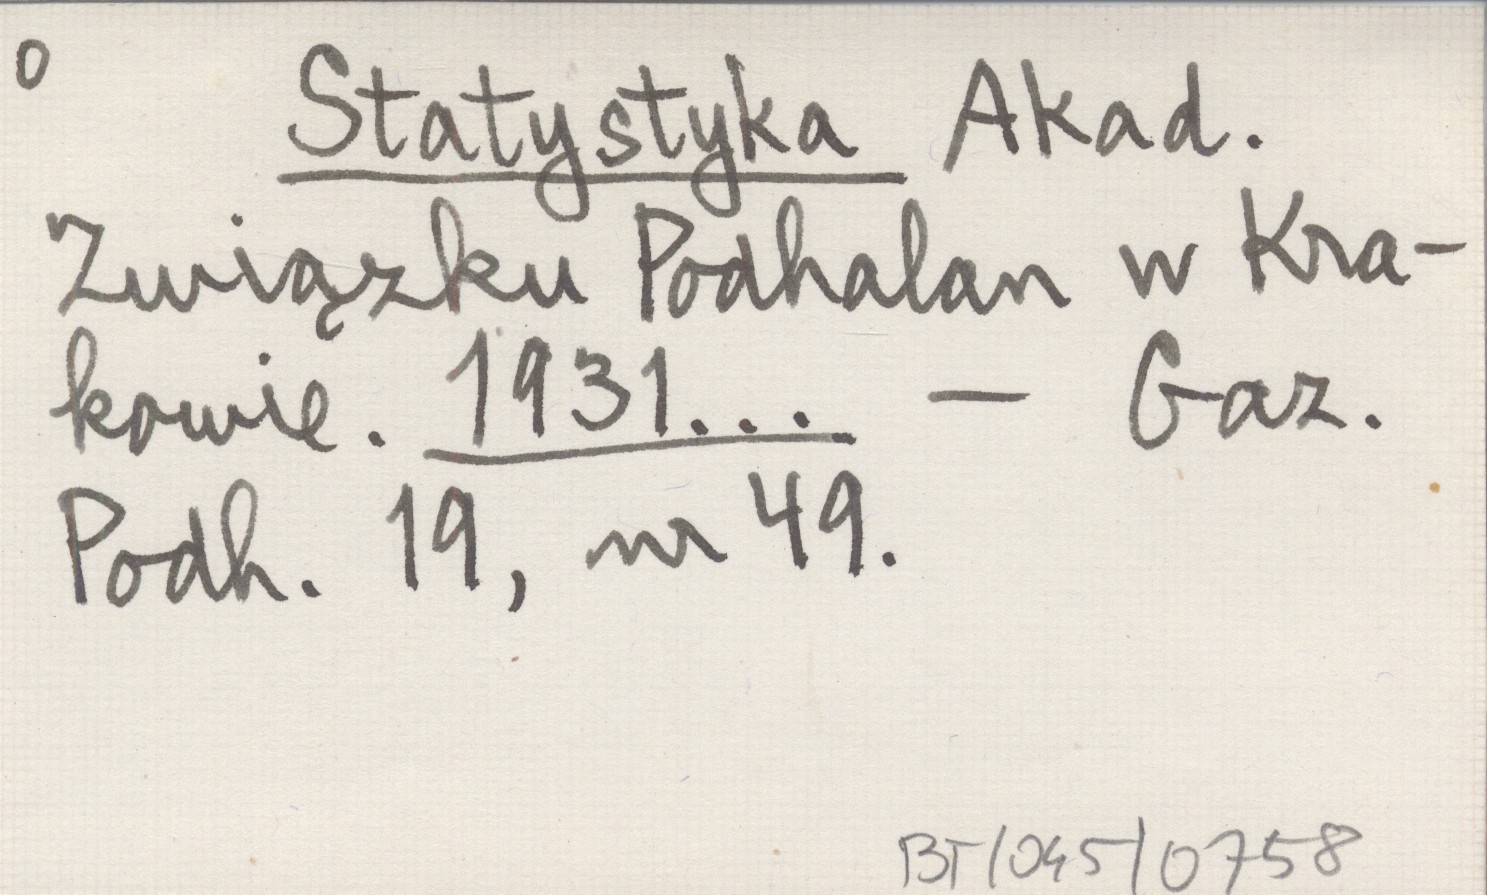 o Statystyka Akad.
Związku Podhalan w Kra-
kowie. 1931... — Gaz.
Podh. 19, nr 49.
BT/045/0758